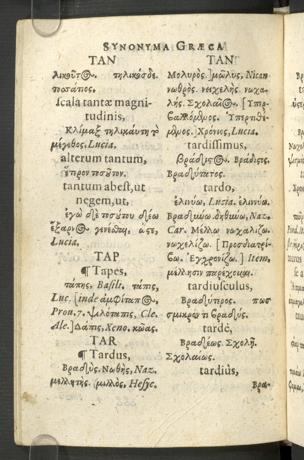 SYNONYMA GRÆCA
TAN
λικοῦτος. τηλικόσδε.
ποσάτιος.
scala tantæ magni-
tudinis,
Κλίμαξ τηλικαύτη τὸ
μέγεθος. Lucia.
alterum tantum,
ἕτερον τοσοῦτον.
tantum abest, ut
negem, ut,
ἐγὼ δὲ τοσούτου δέω
ἔξαρνος γενέσθαι, ὥστε,
Lucia.
TAP
¶ Tapes,
τάπης, Basil. τάπις,
Luc. [inde ἀμφίταπος,
Pron. 7. ψιλόταπις, Cle.
Ale.] Δάπις, Xeno. κῶας.
TAR
¶ Tardus,
Βραδὺς. Νωθὴς, Naz.
μελλητής. μελλὸς, Hesyc.
TAN
Μολυρός. μῶλυς, Nican.
νωθρὸς. νωχελής. νωχα-
λής. Σχολαῖος. [Ὑπερ-
Κλίμαξ
tardissimus,
βράδιστος. Βράδιστς.
Βραδύτατος.
tardo,
ἐλινύω, Lucia. ἐλινύω.
Βραδύνω δηθύνω, Naz.
Car. Μέλλω νωχαλίζω.
νωχελίζω. [Προσδιατρί-
βω. Ἐγχρονίζω.] Item,
μέλλησιν παρέχομαι.
tardiusculus,
Βραδύτερος. πως
σμικρῷ τι βραδύς.
tardè,
Βραδέως. Σχολῇ.
Σχολαίως.
tardiùs,
Βρα-